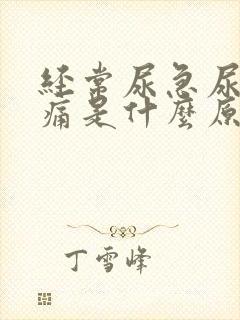 经常尿急尿
痛是什麼原
丁雪峰